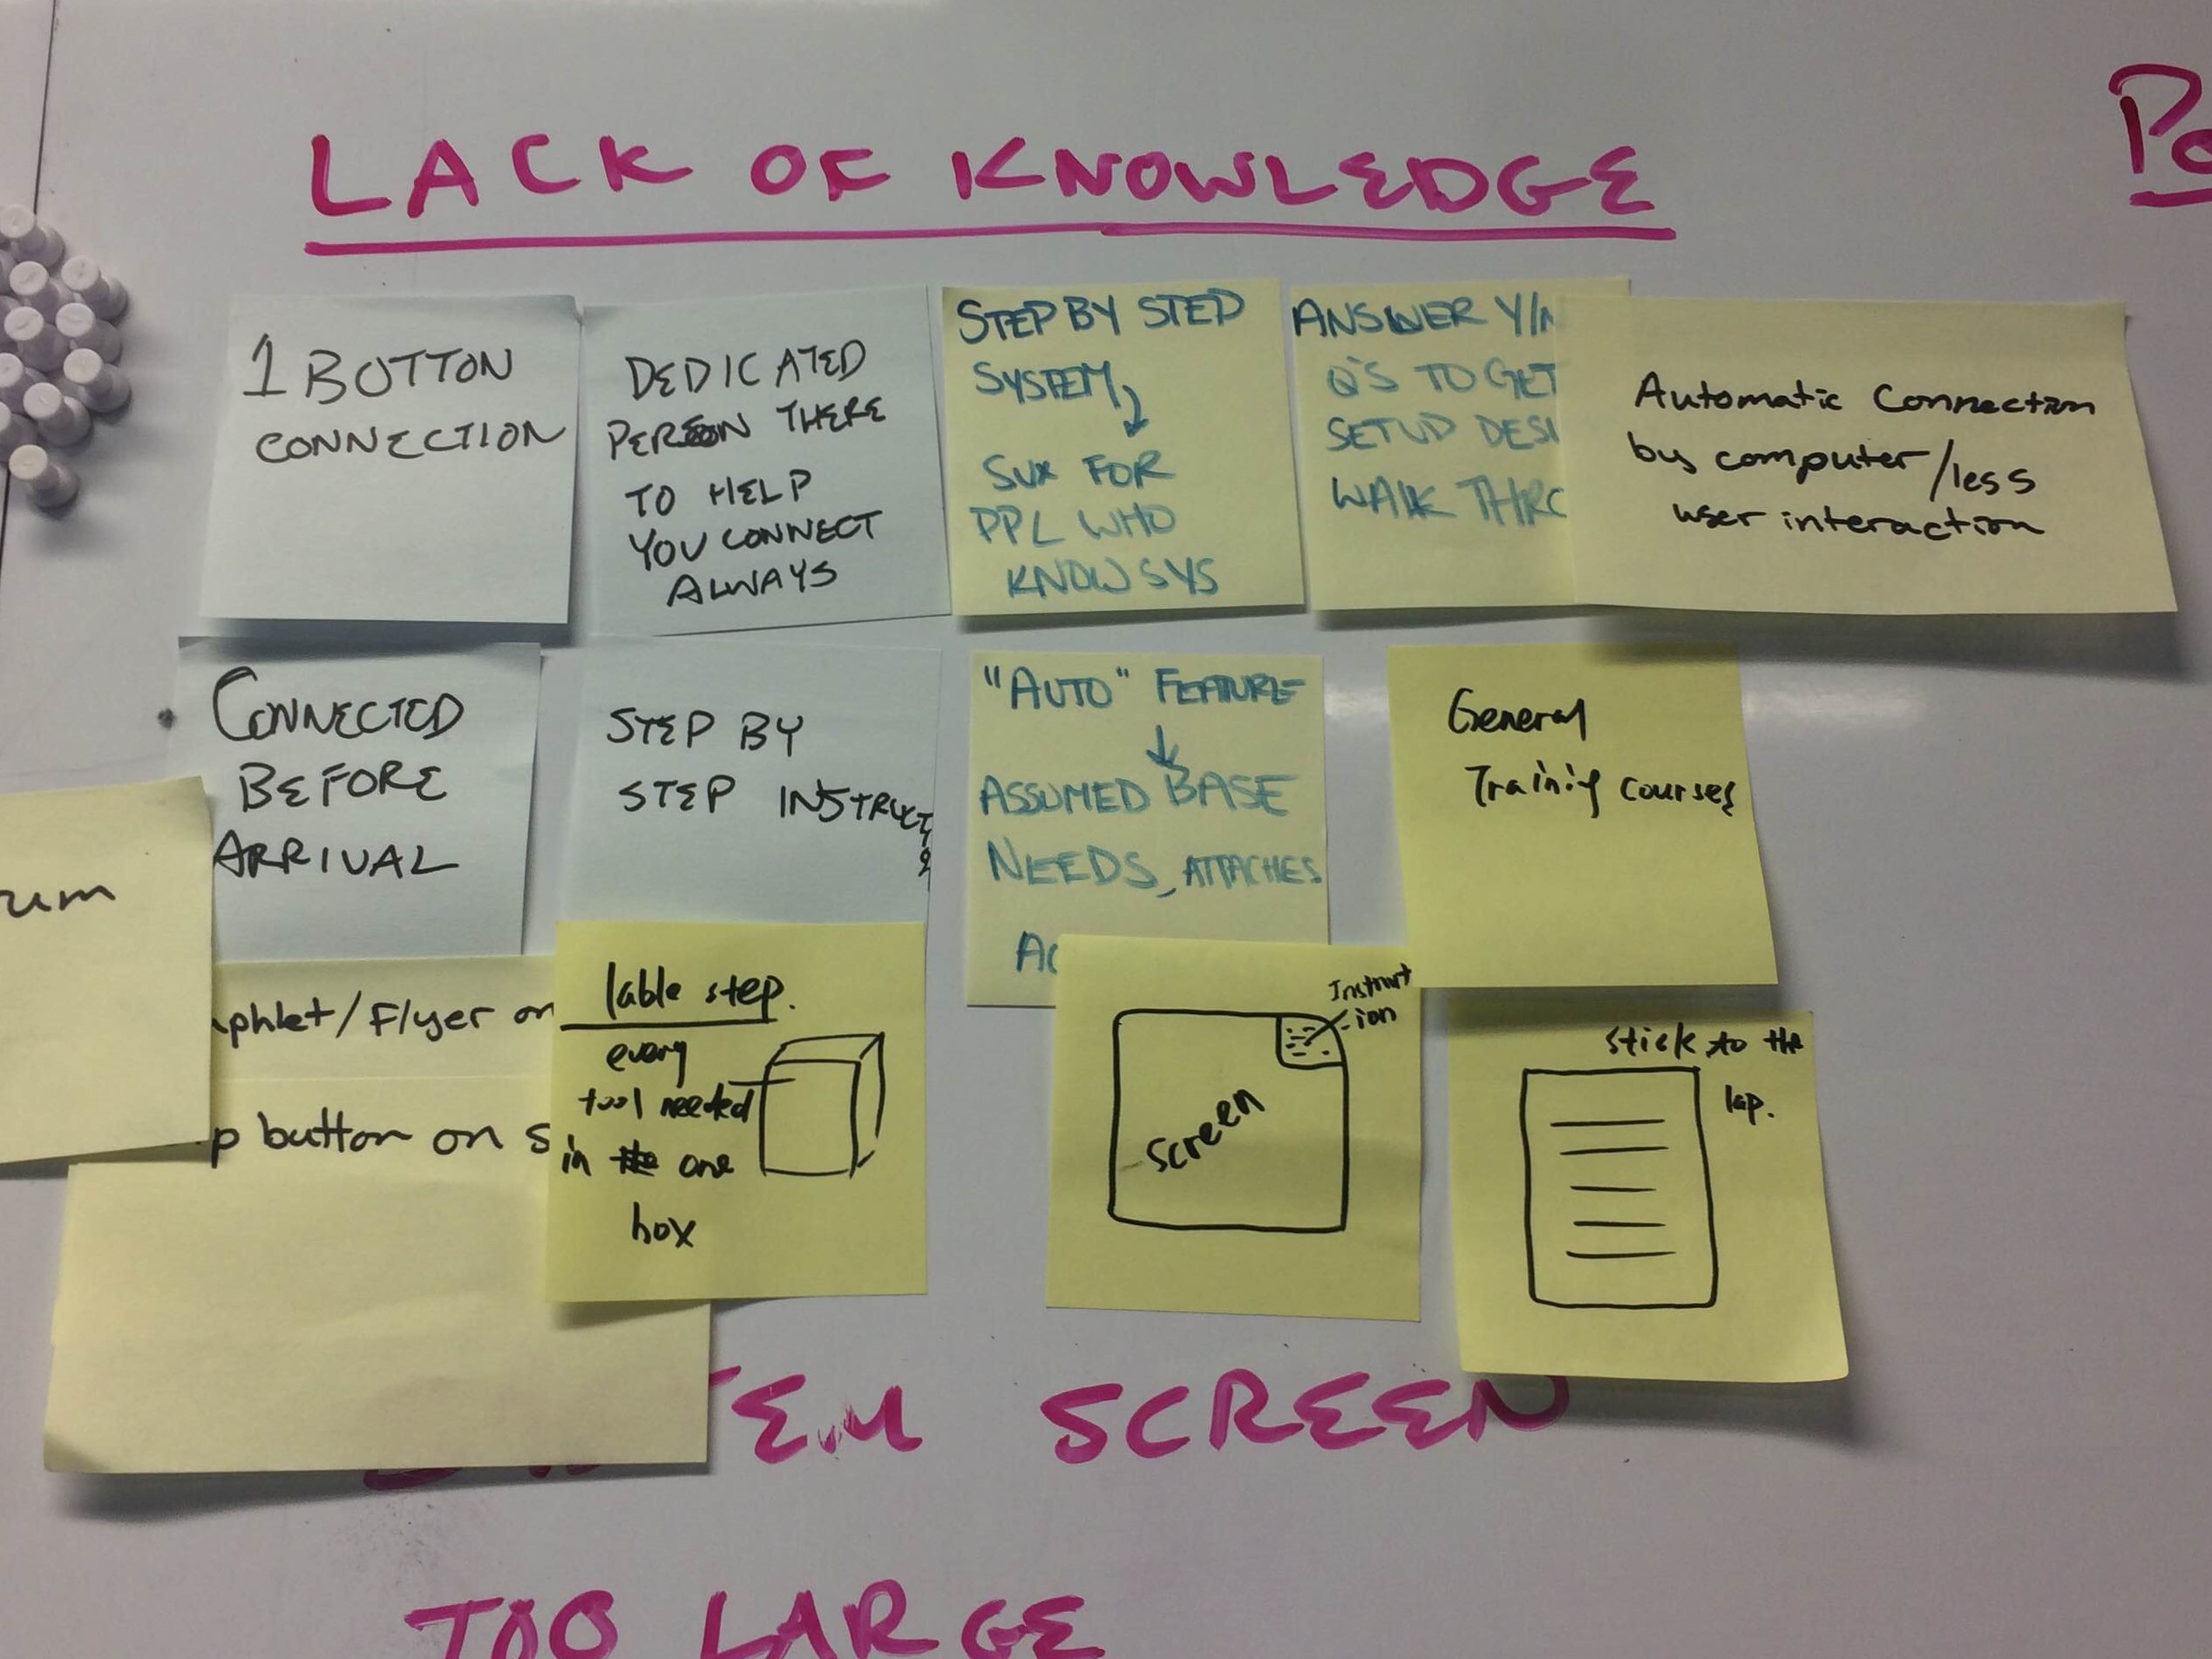 LACK OF KNOWLEDGE
1 BUTTON
CONNECTION
DEDICATED
PERSON THERE
TO HELP
YOU CONNECT
ALWAYS
STEP BY STEP
SYSTEM
SUX FOR
PPL WHO
KNOW SYS
ANSWER Y/N
Q'S TO GET
SETUP DESI
WALK THRO
Automatic Connection
by computer/less
user interaction
CONNECTED
BEFORE
ARRIVAL
STEP BY
STEP INSTRUCT
"AUTO" FEATURE
ASSUMED BASE
NEEDS, ATTACHES
General
Training courses
um
phlet/Flyer on
p button on s
lable step.
every
tool needed
in the one
box
Instruct
-ion
Screen
stick to the
lap.
EM SCREEN
TOO LARGE